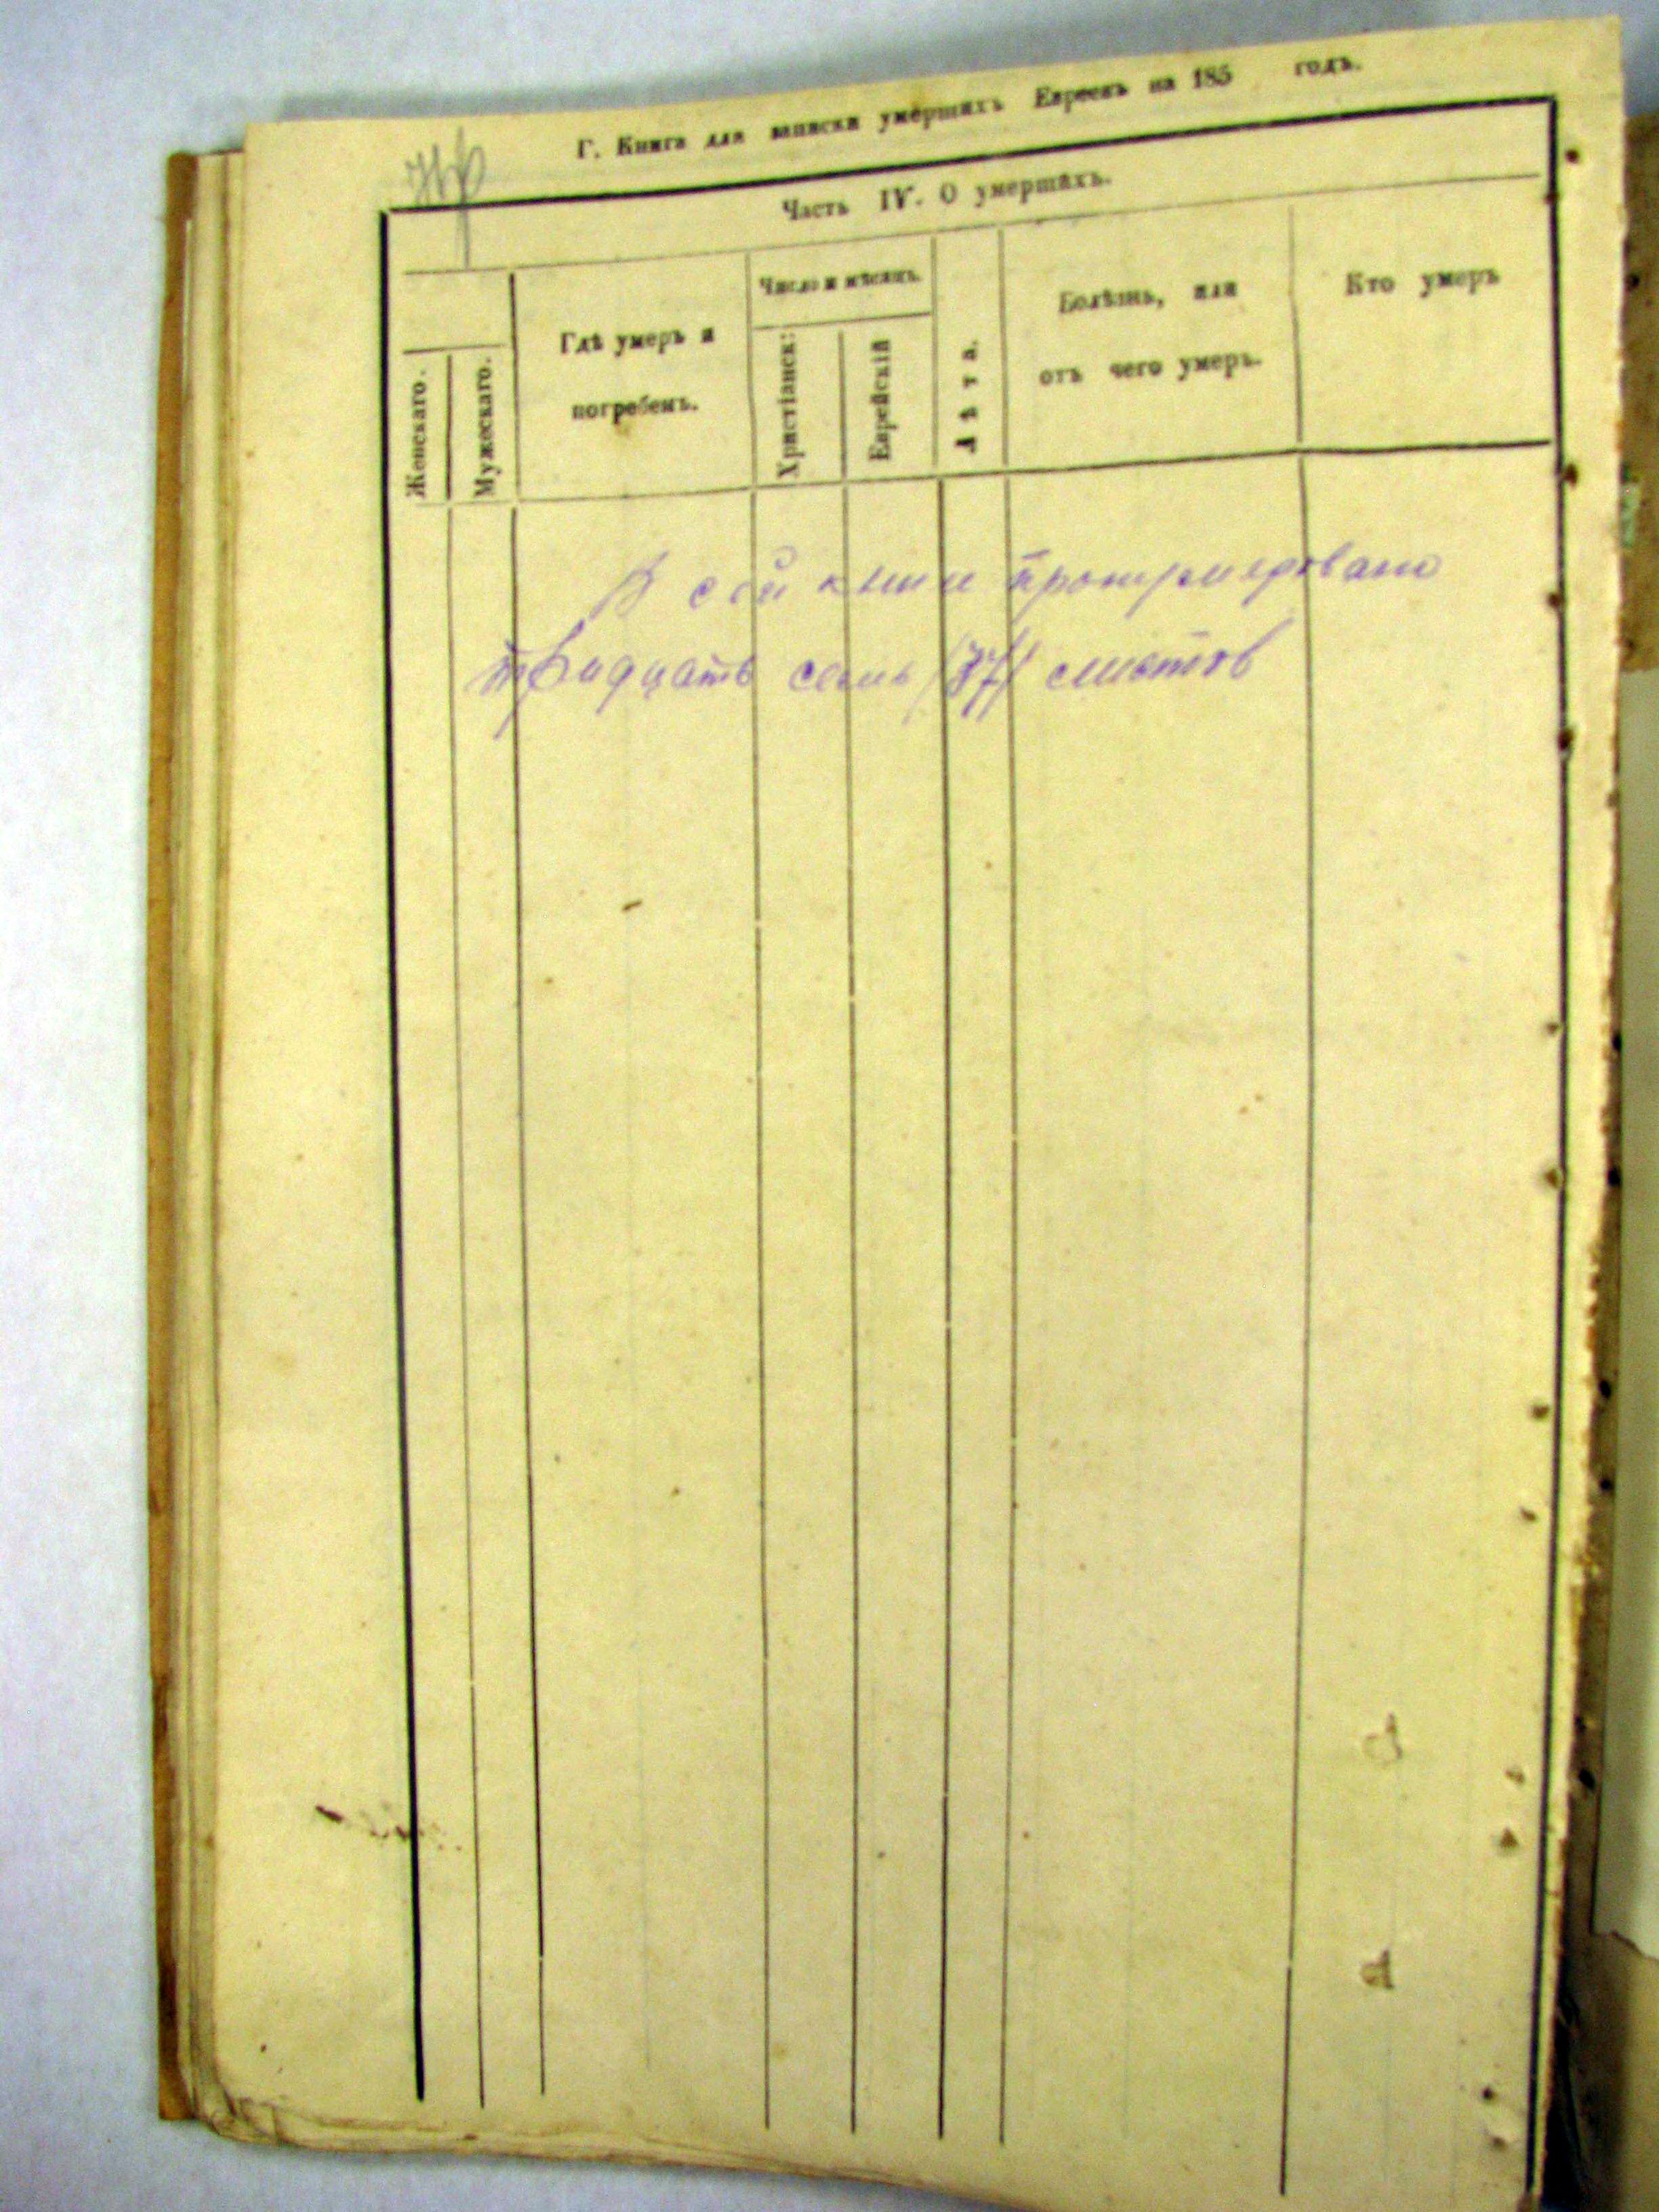 Г. Книга для записки умершихъ Евреевъ на 185 годъ.
Часть IV. О умершихъ.
Женскаго.
Мужескаго.
Гдѣ умеръ и
погребенъ.
Число и мѣсяцъ.
Христіанск:
Еврейскій
Лѣта.
Болѣзнь, или
отъ чего умеръ.
Кто умеръ
В сей книги пронумеровано
тридцать семь (37) листов